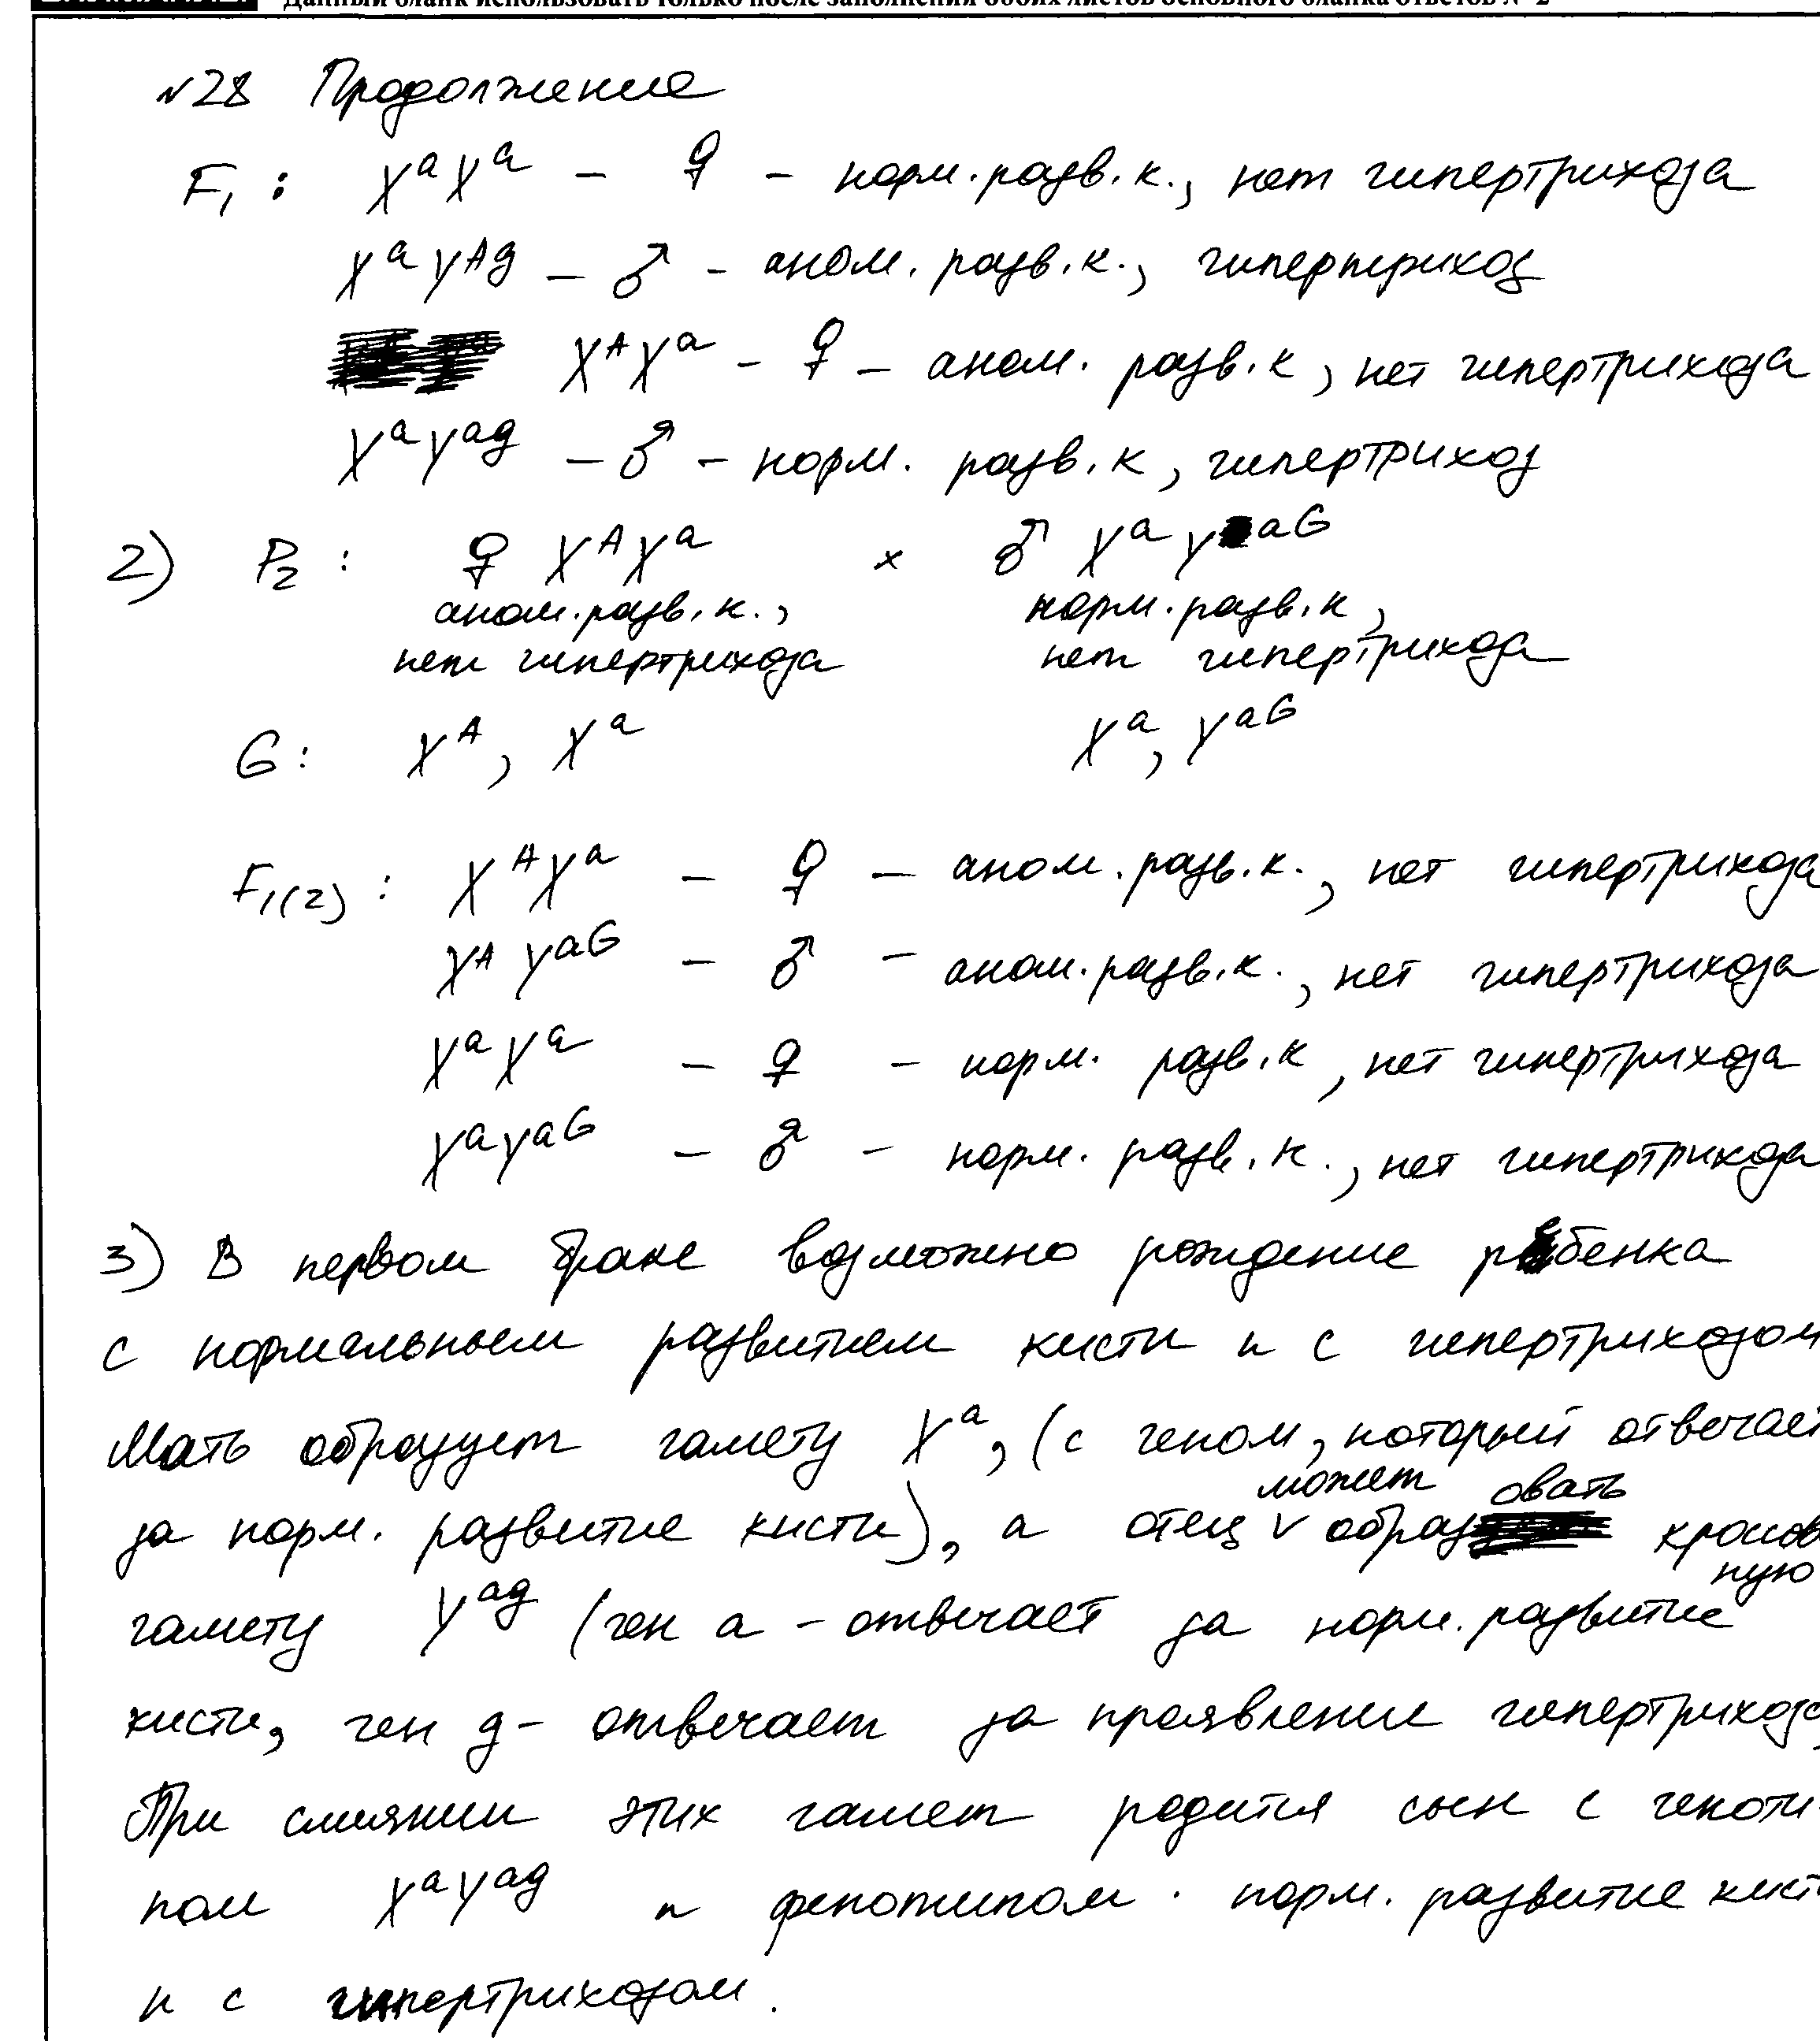 Данный бланк использовать только после заполнения обоих листов основного бланка ответов № 2
№28 Продолжение
F₁ : XᵃXᵃ – ♀ – норм. разв. к., нет гипертрихоза
XᵃYᴬᵍ – ♂ – аном. разв. к., гипертрихоз
XᴬXᵃ – ♀ – аном. разв. к, нет гипертрихоза
XᵃYᵃᵍ – ♂ – норм. разв. к, гипертрихоз
2) P₂ : ♀ XᴬXᵃ × ♂ XᵃYᵃᴳ
аном. разв. к., норм. разв. к,
нет гипертрихоза нет гипертрихоза
G : Xᴬ, Xᵃ Xᵃ, Yᵃᴳ
F₁₍₂₎ : XᴬXᵃ – ♀ – аном. разв. к., нет гипертрихоза
XᴬYᵃᴳ – ♂ – аном. разв. к., нет гипертрихоза
XᵃXᵃ – ♀ – норм. разв. к, нет гипертрихоза
XᵃYᵃᴳ – ♂ – норм. разв. к., нет гипертрихоза
3) В первом браке возможно рождение ребенка
с нормальным развитием кисти и с гипертрихозом
Мать образует гамету Xᵃ, (с геном, который отвечает
за норм. развитие кисти), а отец может образовать кроссовер
ную
гамету Yᵃᵍ (ген a – отвечает за норм. развитие
кисти, ген g – отвечает за проявление гипертрихоза,
При слиянии этих гамет родится сын с геноти-
пом XᵃYᵃᵍ и фенотипом . норм. развитие кист
и с гипертрихозом.